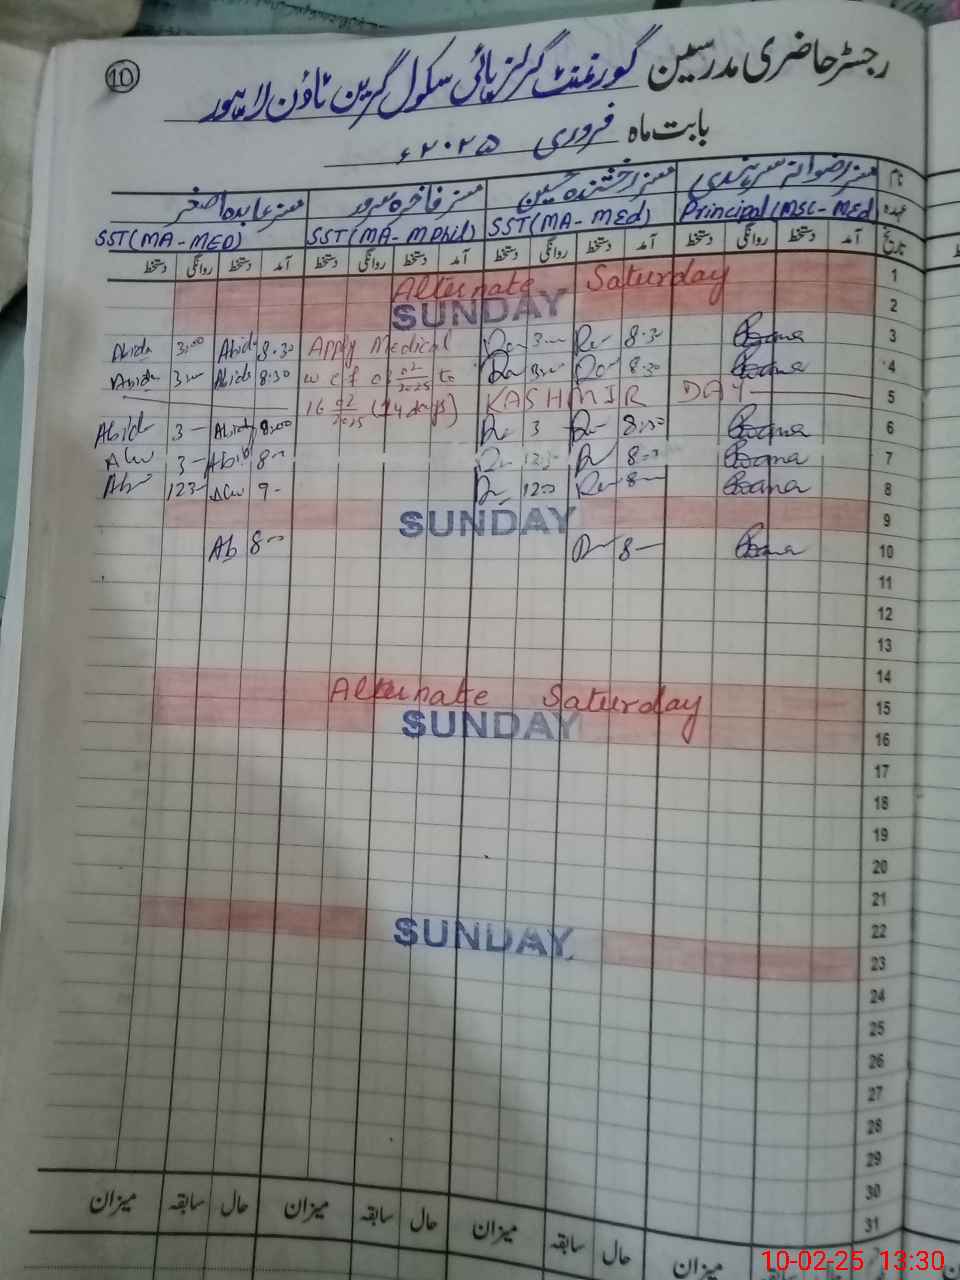 10
رجسٹر حاضری مدرسین گورنمنٹ گرلز ہائی سکول گرین ٹاؤن لاہور
بابت ماہ فروری ۲۰۲۵ء
نام مسز رخشندہ حسین مسز فاخرہ سرور مسز عابدہ اصغر
عہدہ Principal (MSc-MEd SST(MA-MEd) SST(MA-MPhil) SST(MA-MED)
تاریخ آمد دستخط روانگی دستخط آمد دستخط روانگی دستخط آمد دستخط روانگی دستخط آمد دستخط روانگی دستخط
1 Alternate Saturday
2 SUNDAY
3 8:30 3 Apply Medical 8:30 Abida 3:00 Abida
4 8:30 w.e.f 02/2025 to 8:30 Abida 3 Abida
5 KASHMIR DAY 16 02/2025 (14 days)
6 8:00 3 8:00 Abida 3 Abid
7 8 8 3
8 8 12 9 12
9 SUNDAY
10 8 8 Ab
11
12
13
14
15 Alternate Saturday
16 SUNDAY
17
18
19
20
21
22
23 SUNDAY
24
25
26
27
28
29
30
31
میزان حال سابقہ میزان حال سابقہ میزان حال سابقہ میزان
10-02-25 13:30